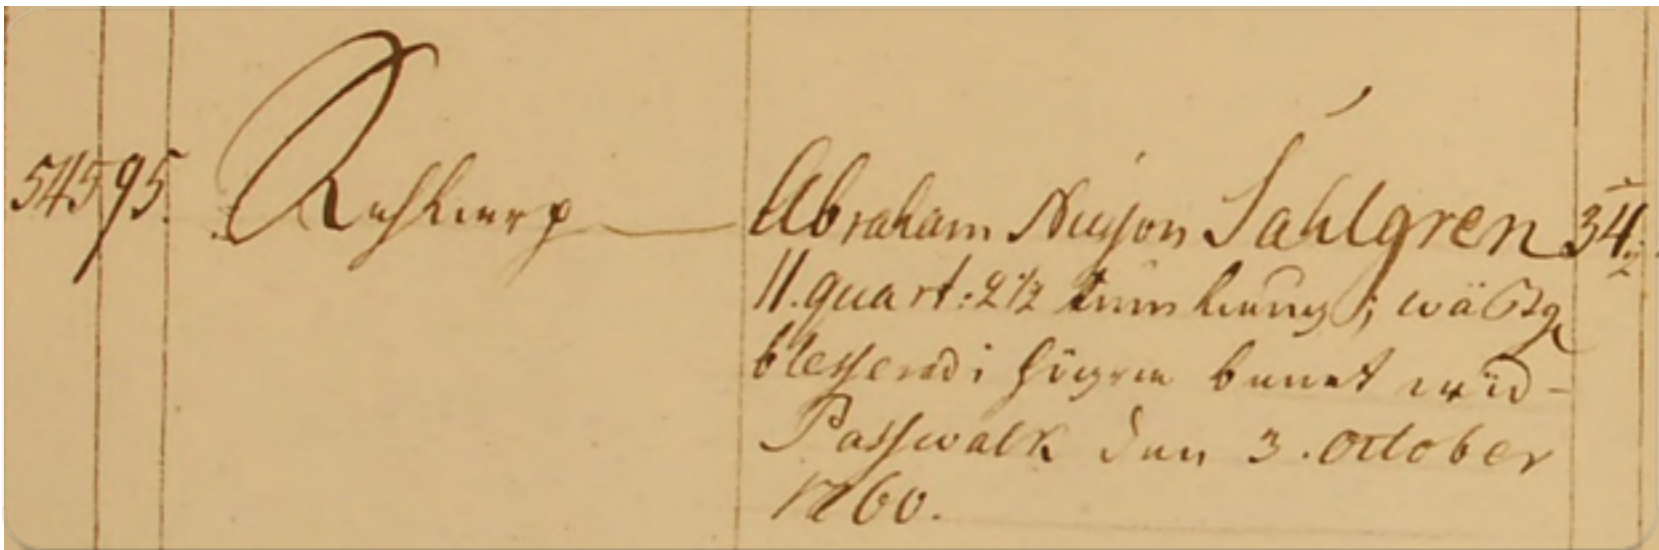 545 95. Abraham Nilsson Sahlgren 34 1/2
11. quart: 2 1/2 tum lång; wäst
blesserad i högra benet wid
Passwalk den 3. October
1760.